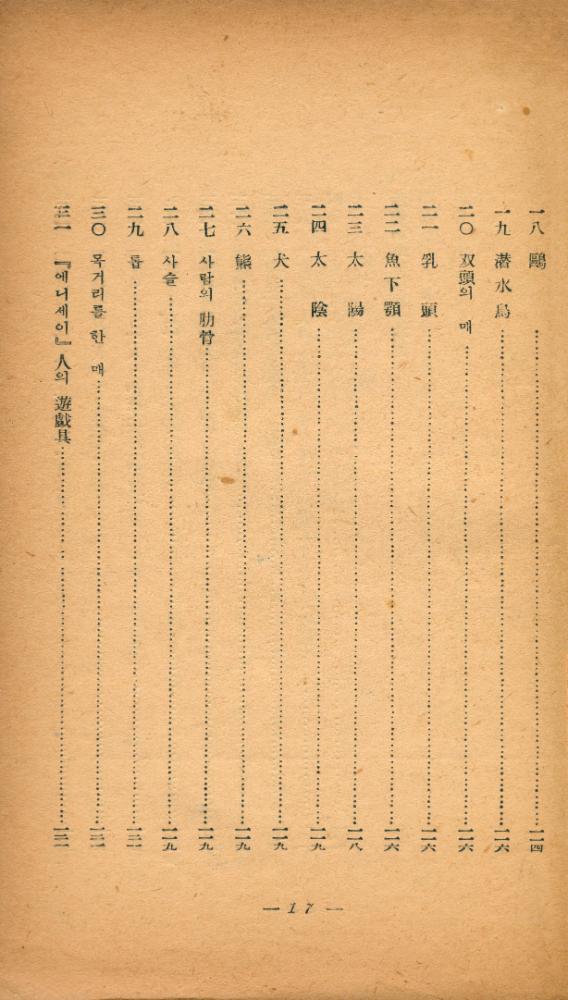 一八 鷗 一一四
一九 潜水鳥 一一六
二〇 双頭의 매 一一六
二一 乳頭 一一六
二二 魚下顎 一一六
二三 太陽 一一八
二四 太陰 一一九
二五 犬 一一九
二六 熊 一一九
二七 사람의 肋骨 一一九
二八 사슬 一一九
二九 톱
三〇 목거리를 한 매
三一 『에니세이』人의 遊戱具
— 17 —